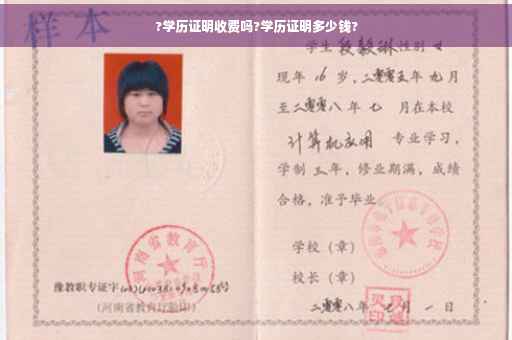 ?学历证明收费吗?学历证明多少钱?
样本
学生段毅琳性别女
现年16岁，二零零五年九月
至二零零八年七月在本校
计算机应用 专业学习，
学制三年，修业期满，成绩
合格，准予毕业
学校（章）
校长（章）
二零零八年七月一日
河南省教育厅
豫教职专证字
(河南省教育厅验印)